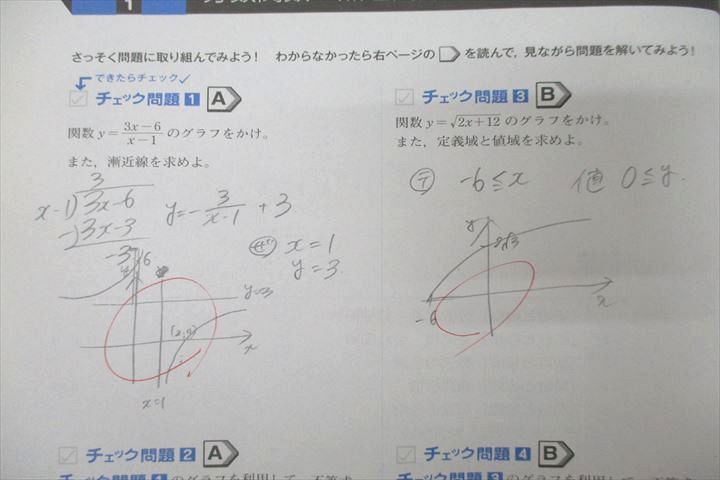 1
さっそく問題に取り組んでみよう！ わからなかったら右ページの を読んで，見ながら問題を解いてみよう！
できたらチェック✓
チェック問題 1 A
関数 y=(3x-6)/(x-1) のグラフをかけ。
また，漸近線を求めよ。
3
x-1)3x-6
-)3x-3
-3
y=-3/(x-1)+3
x=1
y=3
6
y=3
(2,0)
x
x=1
チェック問題 3 B
関数 y=√2x+12 のグラフをかけ。
また，定義域と値域を求めよ。
定 -6≦x 値 0≦y.
y
2√3
-6
x
チェック問題 2 A
チェック問題 1 のグラフを利用して，不等式
チェック問題 4 B
チェック問題 3 のグラフを利用して，不等